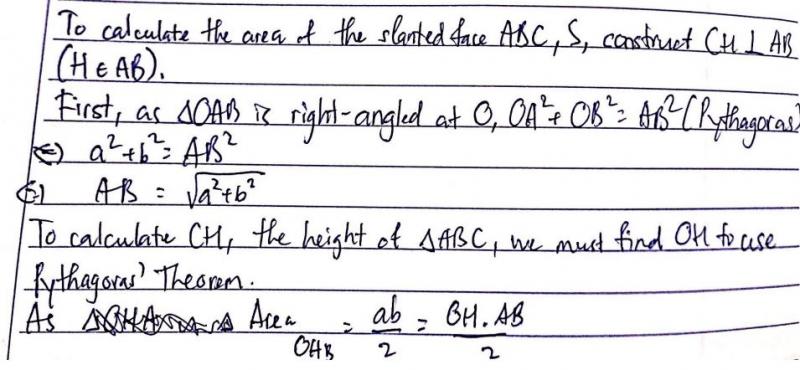 To calculate the area of the slanted face ABC, S, construct CH ⊥ AB
(H ∈ AB).
First, as △OAB is right-angled at O, OA² + OB² = AB² (Pythagoras)
⇔) a² + b² = AB²
⇔) AB = √(a² + b²)
To calculate CH, the height of △ABC, we must find OH to use
Pythagoras' Theorem.
As Area OHB = ab/2 = OH . AB/2